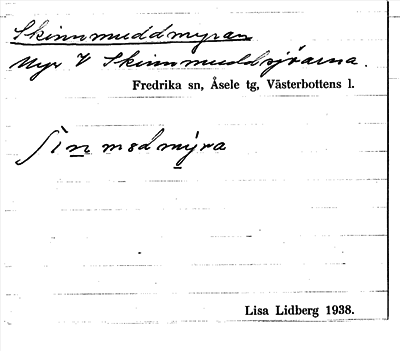 Skinnmuddmyran
Myr V Skinnmuddsjöarna.
Fredrika sn, Åsele tg, Västerbottens l.
Lisa Lidberg 1938.